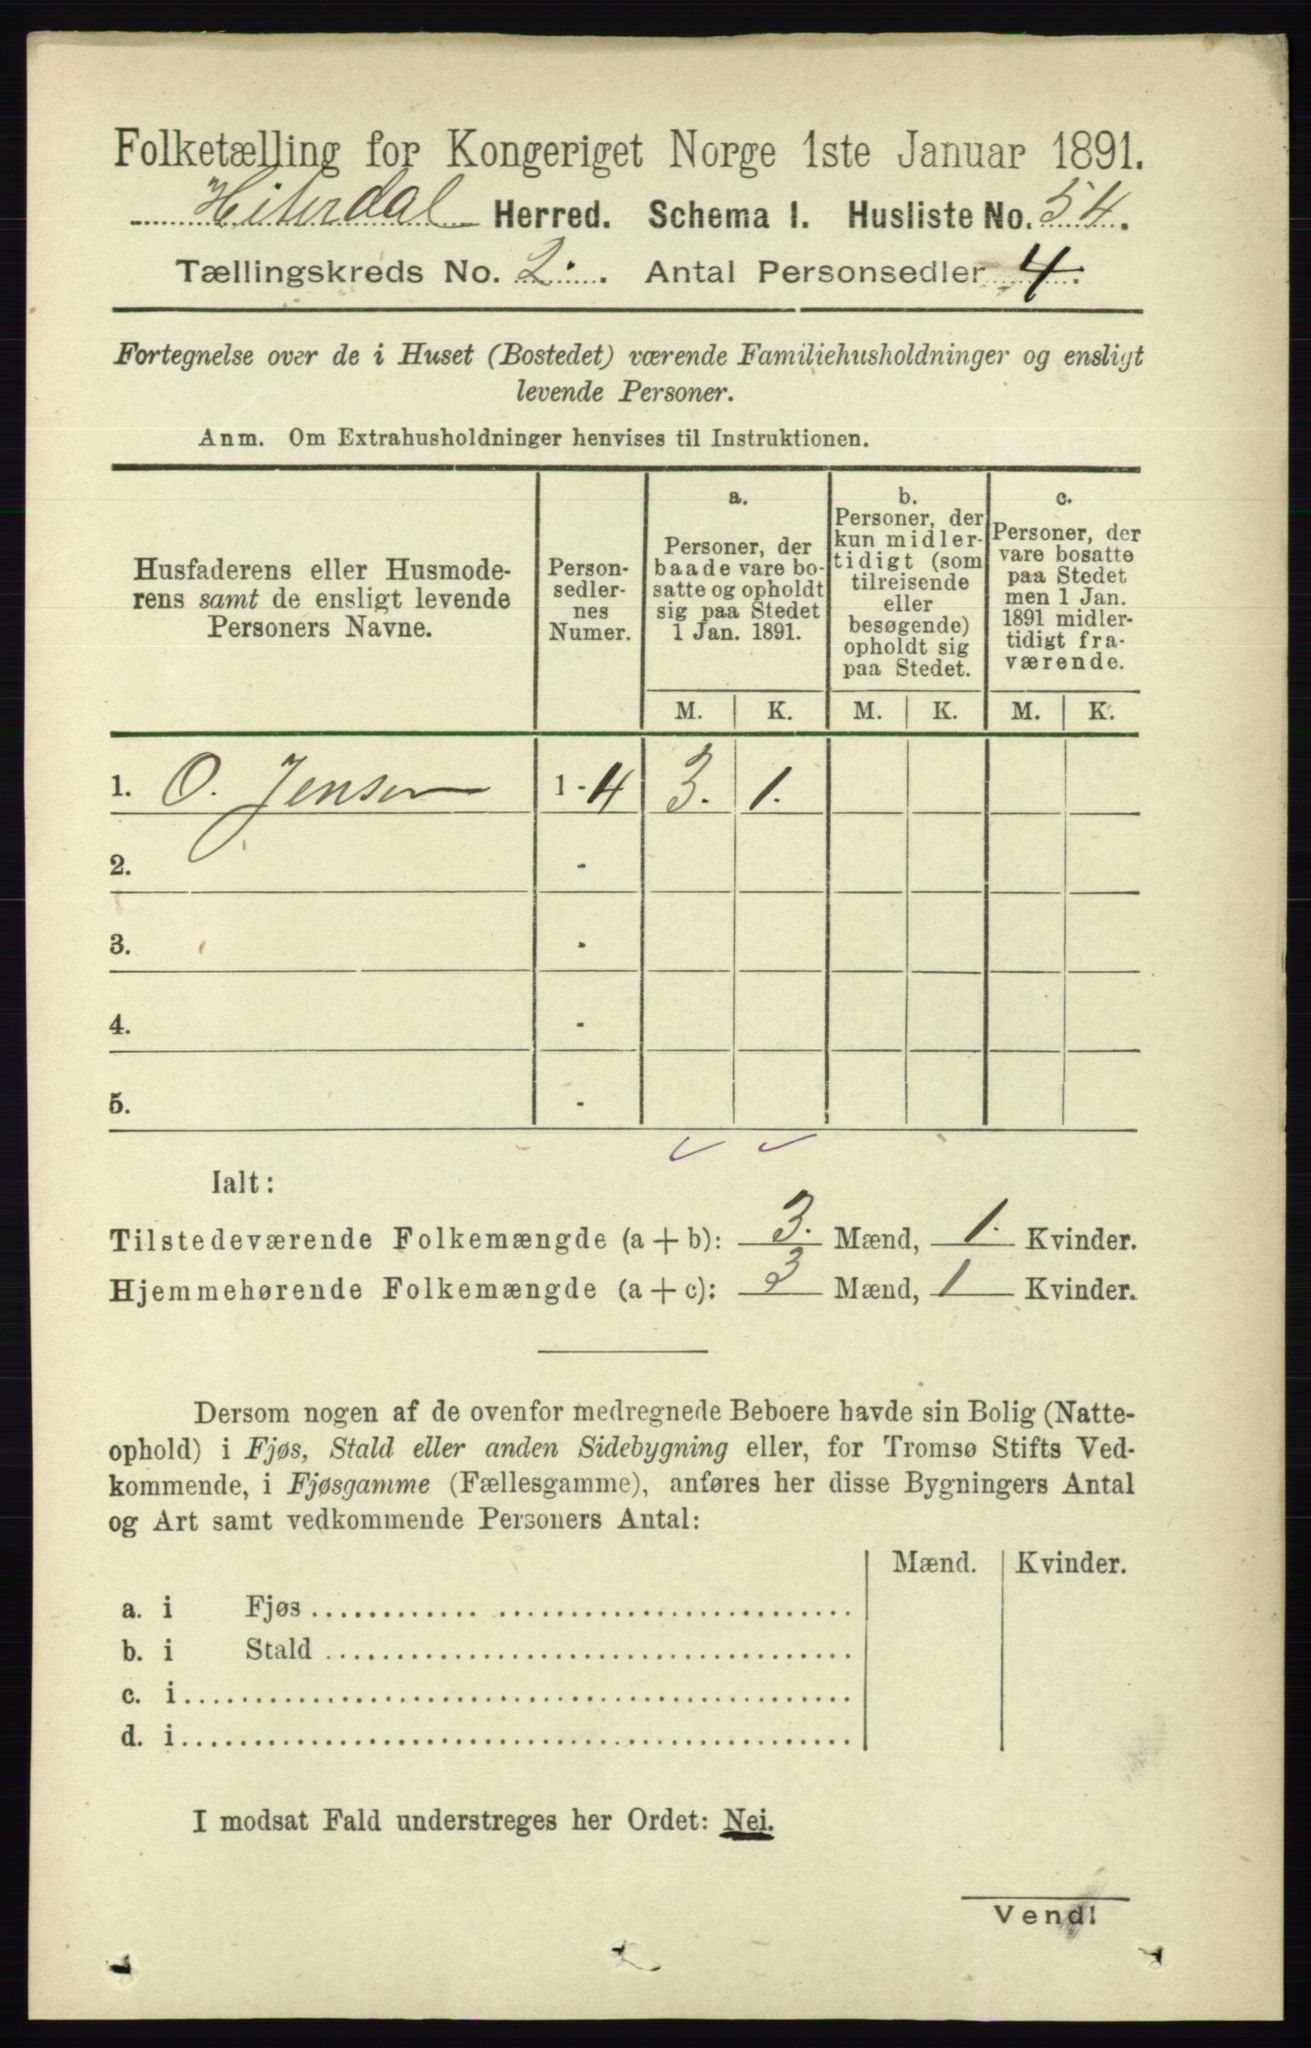 Folketælling for Kongeriget Norge 1ste Januar 1891.
Hiterdal Herred. Schema 1. Husliste No. 54.
Tællingskreds No. 2. Antal Personsedler 4.
Fortegnelse over de i Huset (Bostedet) værende Familiehusholdninger og ensligt
levende Personer.
Anm. Om Extrahusholdninger henvises til Instruktionen.
Husfaderens eller Husmode-
rens samt de ensligt levende
Personers Navne.
Person-
sedler-
nes
Numer.
a.
Personer, der
baade vare bo-
satte og opholdt
sig paa Stedet
1 Jan. 1891.
b.
Personer, der
kun midler-
tidigt (som
tilreisende
eller
besøgende)
opholdt sig
paa Stedet.
c.
Personer, der
vare bosatte
paa Stedet
men 1 Jan.
1891 midler-
tidigt fra-
værende.
M. K. M. K. M. K.
1. O. Jensen 1 - 4 3. 1.
2. -
3. -
4. -
5. -
Ialt:
Tilstedeværende Folkemængde (a + b): 3. Mænd, 1. Kvinder.
Hjemmehørende Folkemængde (a + c): 3 Mænd, 1 Kvinder.
Dersom nogen af de ovenfor medregnede Beboere havde sin Bolig (Natte-
ophold) i Fjøs, Stald eller anden Sidebygning eller, for Tromsø Stifts Ved-
kommende, i Fjøsgamme (Fællesgamme), anføres her disse Bygningers Antal
og Art samt vedkommende Personers Antal:
Mænd. Kvinder.
a. i Fjøs
b. i Stald
c. i
d. i
I modsat Fald understreges her Ordet: Nei.
Vend!